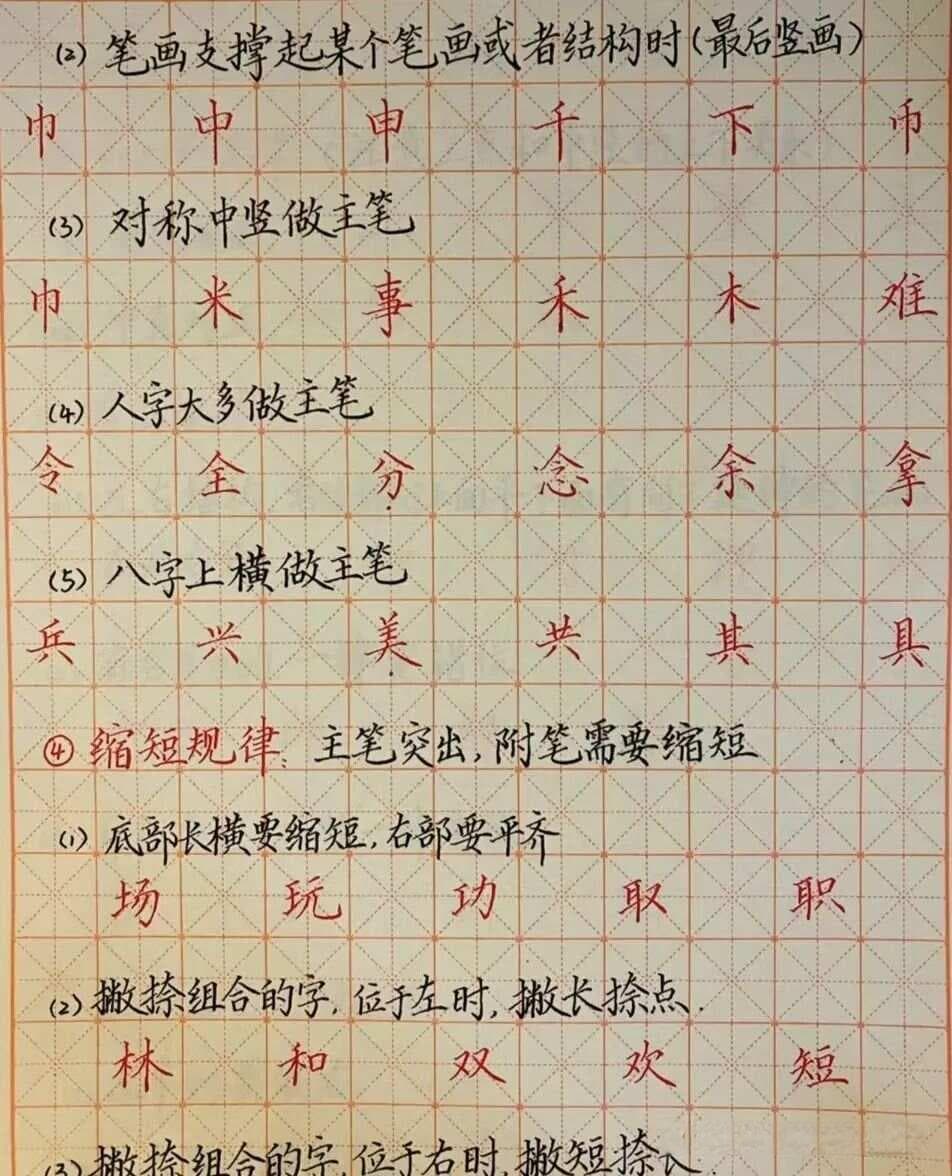 (2) 笔画支撑起某个笔画或者结构时(最后竖画)
巾 中 申 千 下 币
(3) 对称中竖做主笔
巾 米 事 禾 木 难
(4) 人字大多做主笔
令 全 分 念 余 拿
(5) 八字上横做主笔
兵 兴 美 共 其 具
④ 缩短规律: 主笔突出,附笔需要缩短
(1) 底部长横要缩短,右部要平齐
场 玩 功 取 职
(2) 撇捺组合的字,位于左时,撇长捺点.
林 和 双 欢 短
(3) 撇捺组合的字,位于右时,撇短捺